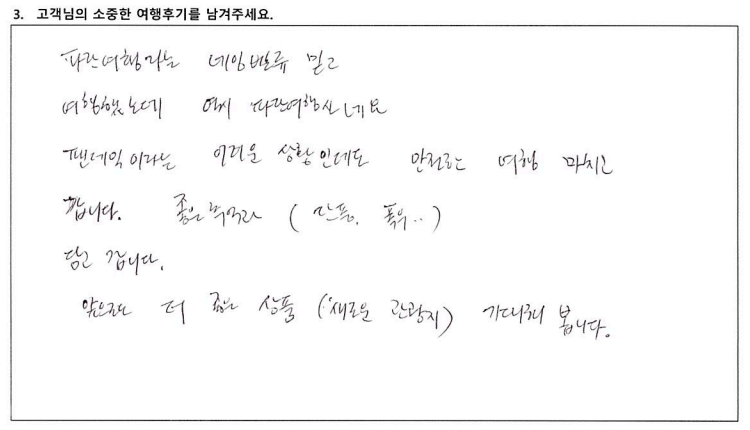 3. 고객님의 소중한 여행후기를 남겨주세요.
파란여행이라는 네임벨류 믿고
여행했는데 역시 파란여행사네요
팬데믹이라는 어려운 상황인데도 안전한 여행 마치고
갑니다. 좋은추억과 (단풍, 폭우..)
담고 갑니다.
앞으로도 더 좋은 상품 (새로운 관광지) 기대해 봅니다.